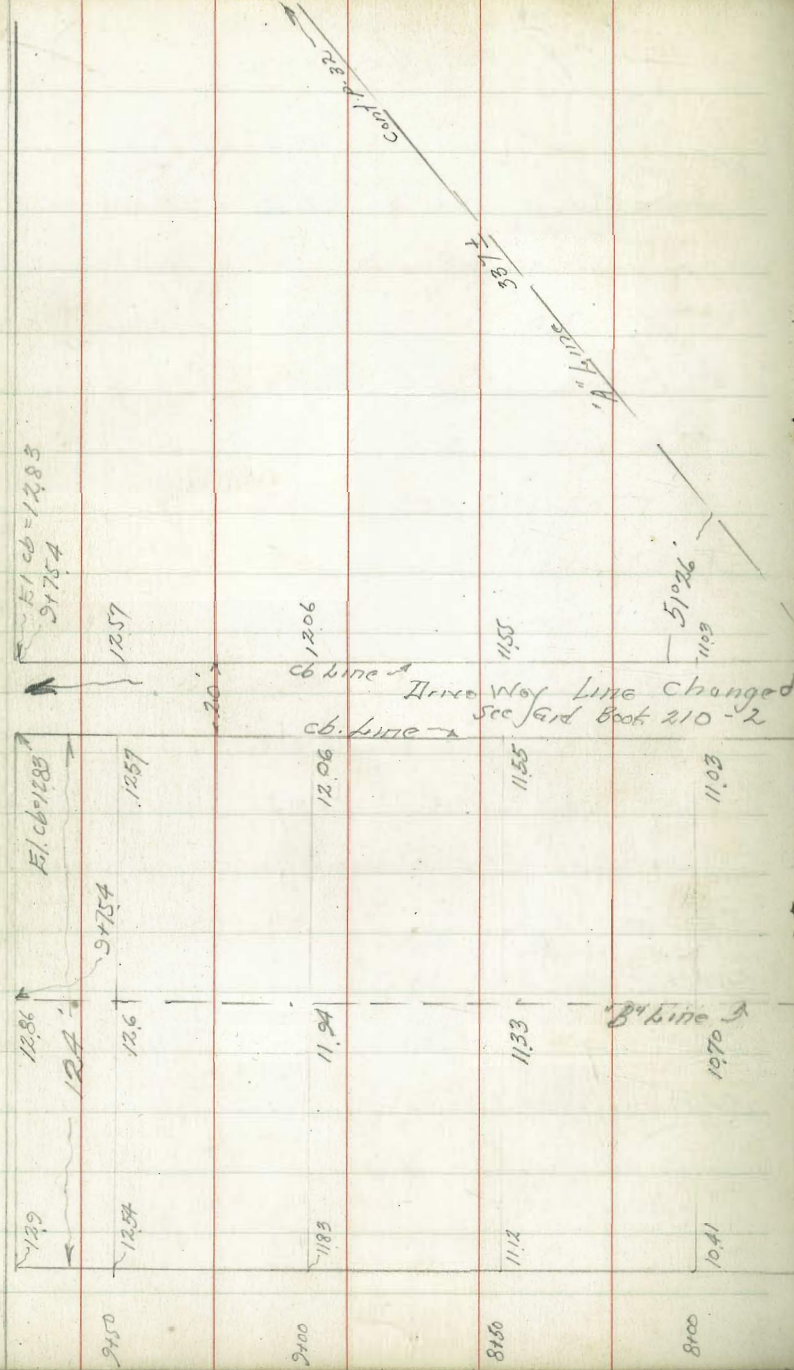 Cont. p. 32
337±
"A" Line
51°26'
El cb = 12.83
9+75.4
12.57
12.06
11.55
11.03
20'
cb Line
Drive Way Line Changed
See Grd Book 210-2
cb. Line
El. cb = 12.83
12.57
12.06
11.55
11.03
9+75.4
12.86
12.6
11.94
11.33
10.70
"B" Line
124'
12.9
12.54
11.83
11.12
10.41
9+50
9+00
8+50
8+00